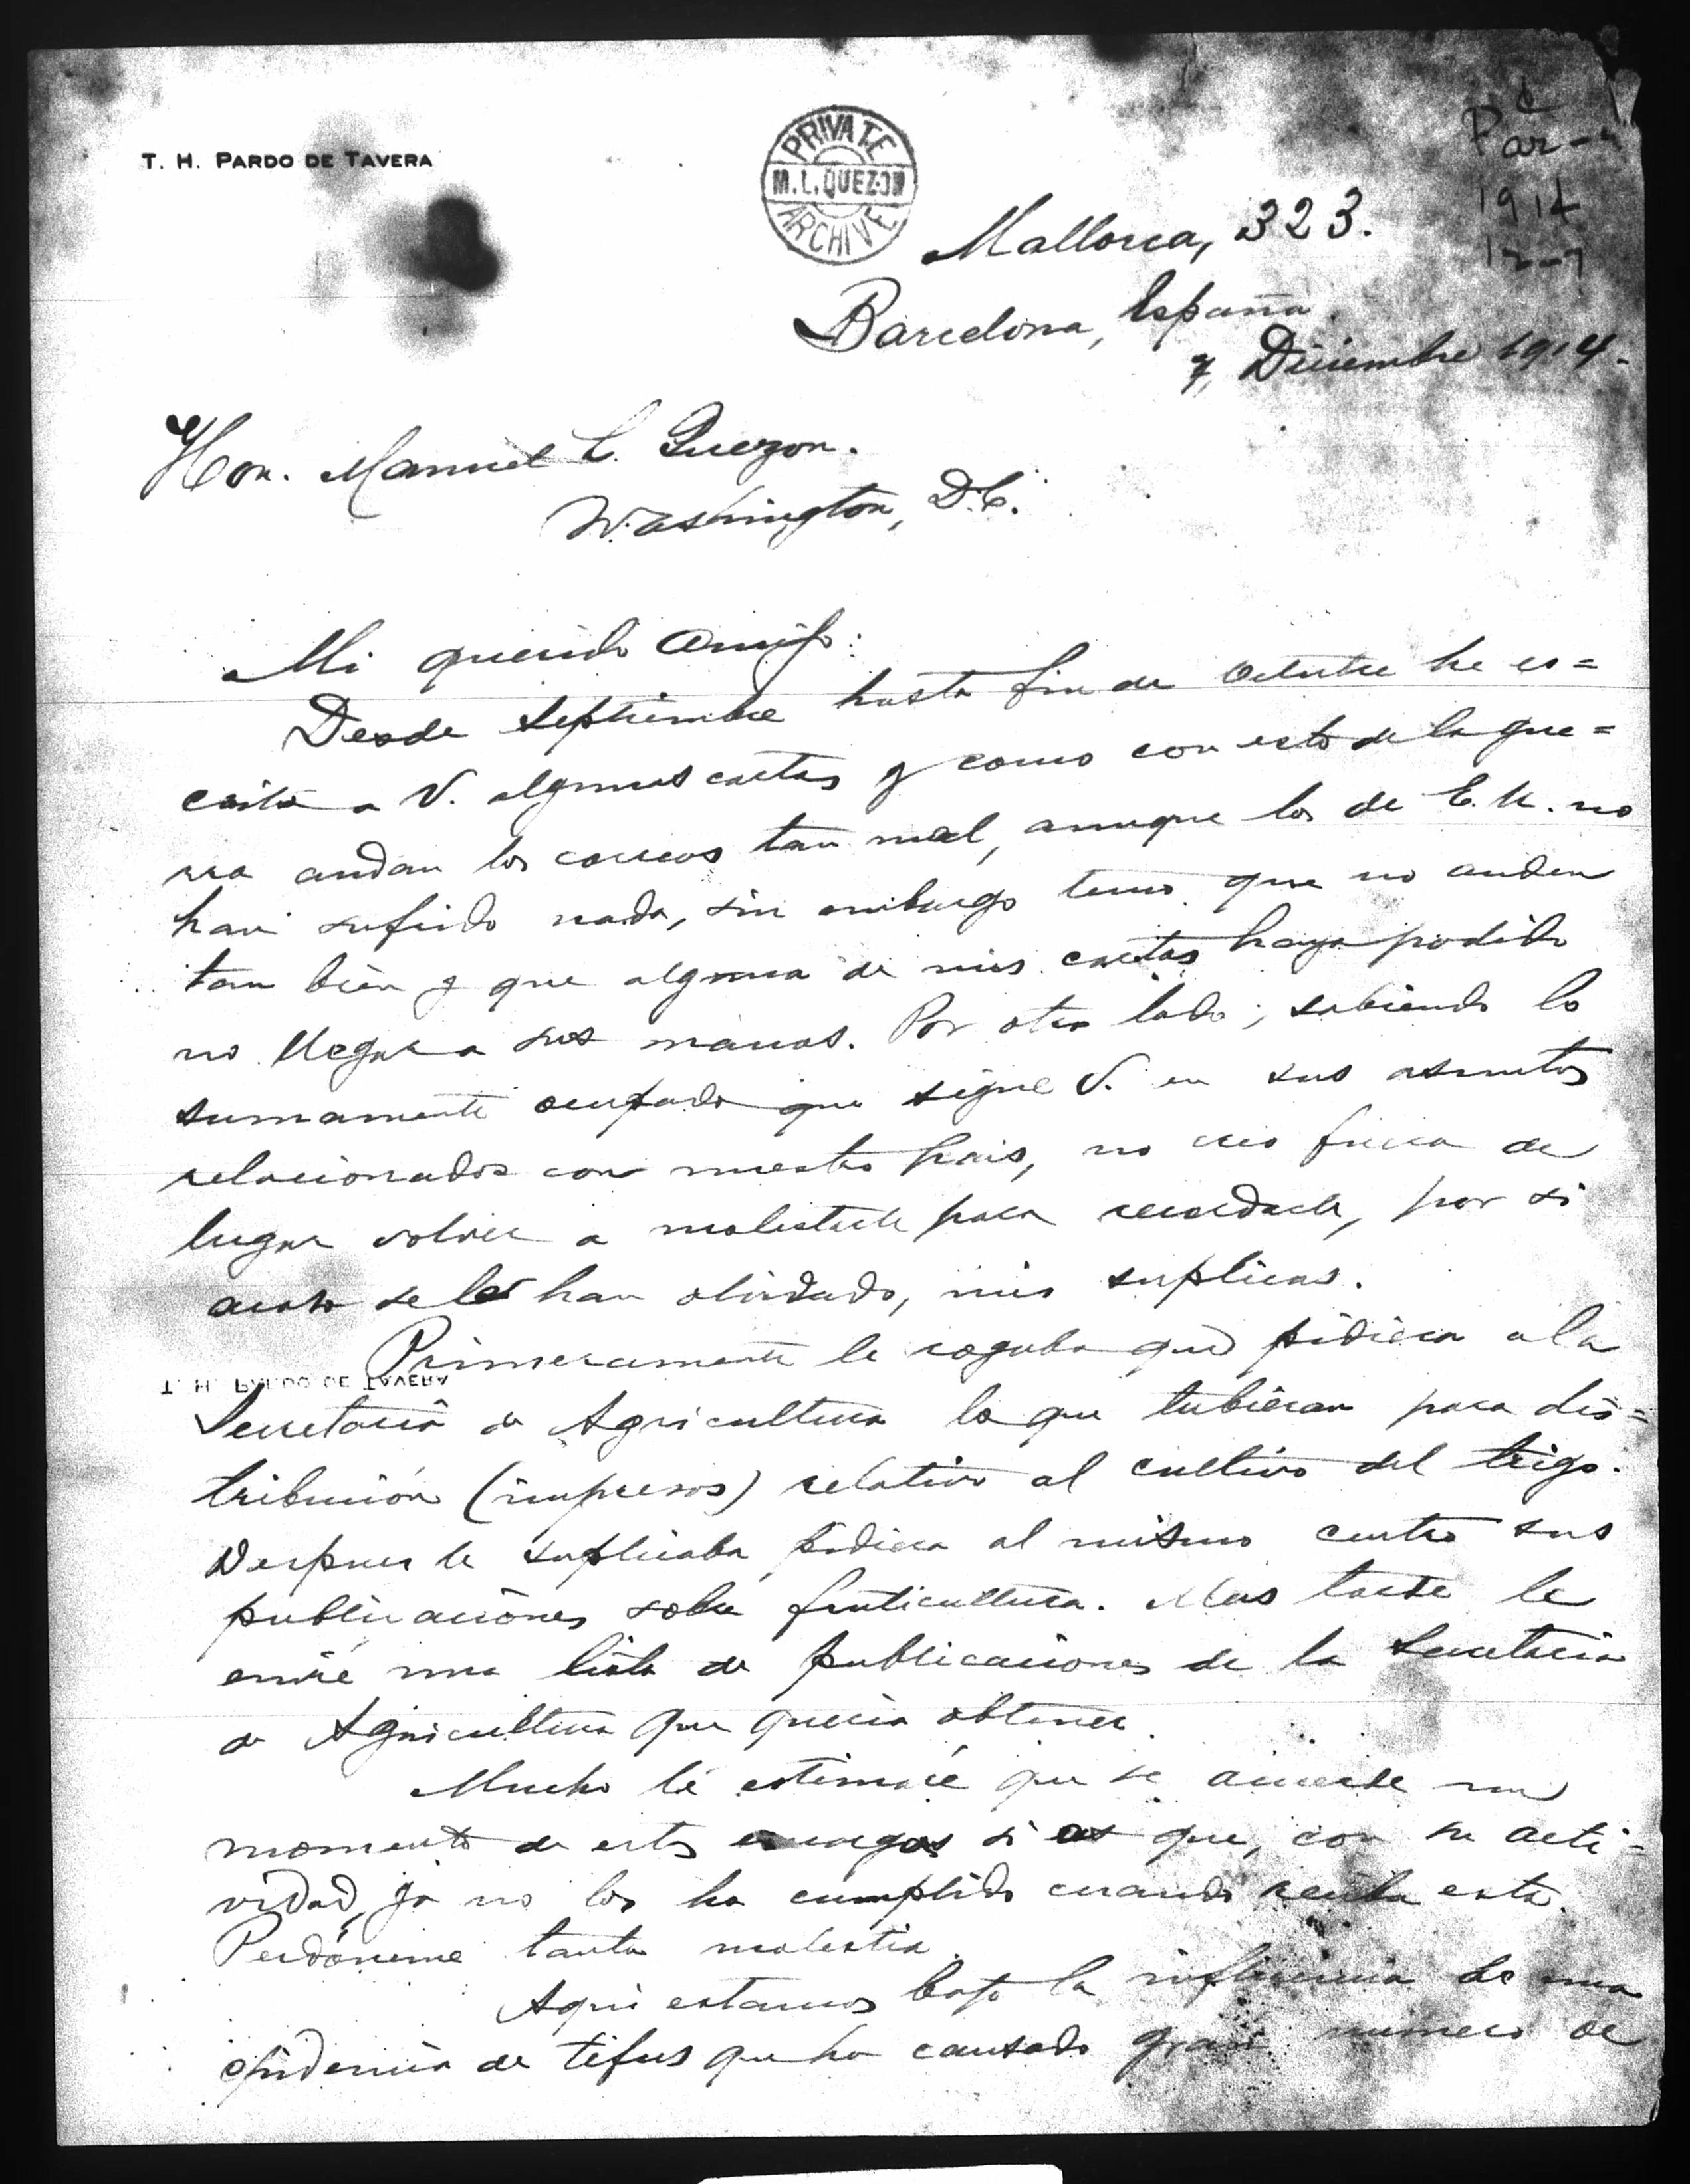 T. H. PARDO DE TAVERA
PRIVATE
M. L. QUEZON
ARCHIVE
Par-
1914
12-7
Mallorca, 323.
Barcelona, España
7, Diciembre 1914.
Hon. Manuel L. Quezon.
Washington, D.C.
Mi querido amigo:
Desde Septiembre hasta fin de Octubre he es=
crito a V. algunas cartas y como con esto de la gue=
rra andan los correos tan mal, aunque los de E. U. no
han sufrido nada, sin embargo temo que no anden
tan bien y que alguna de mis cartas haya podido
no llegar a sus manos. Por otro lado, sabiendo lo
sumamente ocupado que sigue V. en sus asuntos
relacionados con nuestro pais, no creo fuera de
lugar volver a molestarle para recordarle, por si
acaso se le han olvidado, mis suplicas.
Primeramente le rogaba que pidiera a la
T. H. PARDO DE TAVERA
Secretaria de Agricultura lo que tubieran para dis=
tribución (impresos) relativo al cultivo del trigo.
Despues le suplicaba pidiera al mismo centro sus
publicaciónes sobre fruticultura. Mas tarde le
envié una lista de publicaciones de la Secretaria
de Agricultura que queria obtener.
Mucho le estimaré que se acuerde un
momento de estos encargos si es que, con su acti-
vidad, ya no los ha cumplido cuando reciba esta.
Perdóneme tanta molestia.
Aqui estamos bajo la influencia de una
epidemia de tifus que ha causado gran numero de